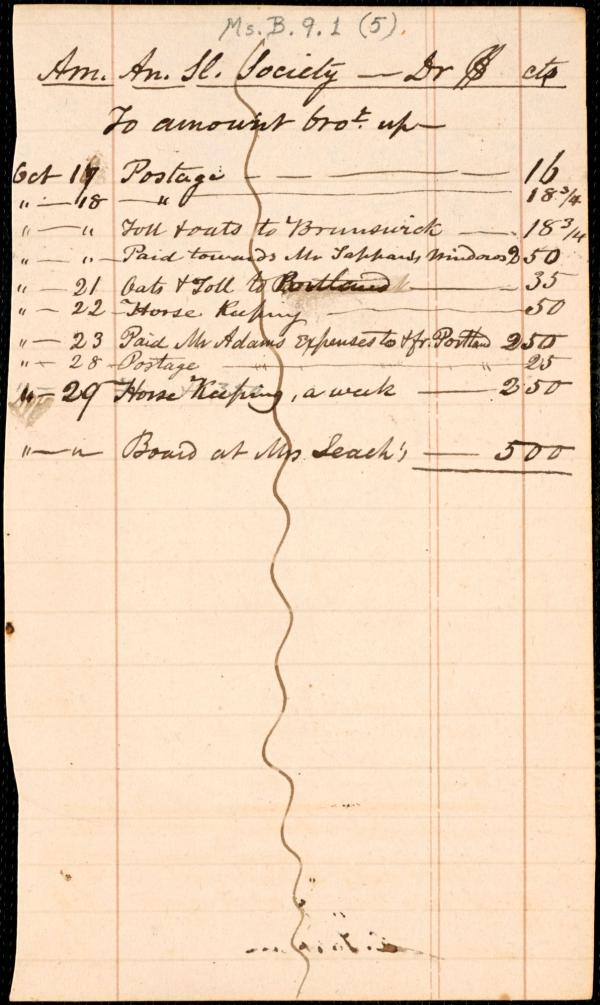 Ms. B. 9. 1 (5).
Am. An. Sl. Society — Dr $ cts
To amount bro.t up —
Oct 17 Postage — — — 16
" — 18 — " — 18 3/4
" — " Toll & oats to Brunswick — 18 3/4
" — " Paid towards Mr Tappan's windows 2 50
" — 21 Oats & Toll to Portland — 35
" — 22 Horse Keeping — 50
" — 23 Paid Mr Adams expenses to & fr. Portland 2 50
" — 28 Postage — " — " 25
" — 29 Horse Keeping, a week — 2 50
" — " Board at Mrs Leach's — 5 00